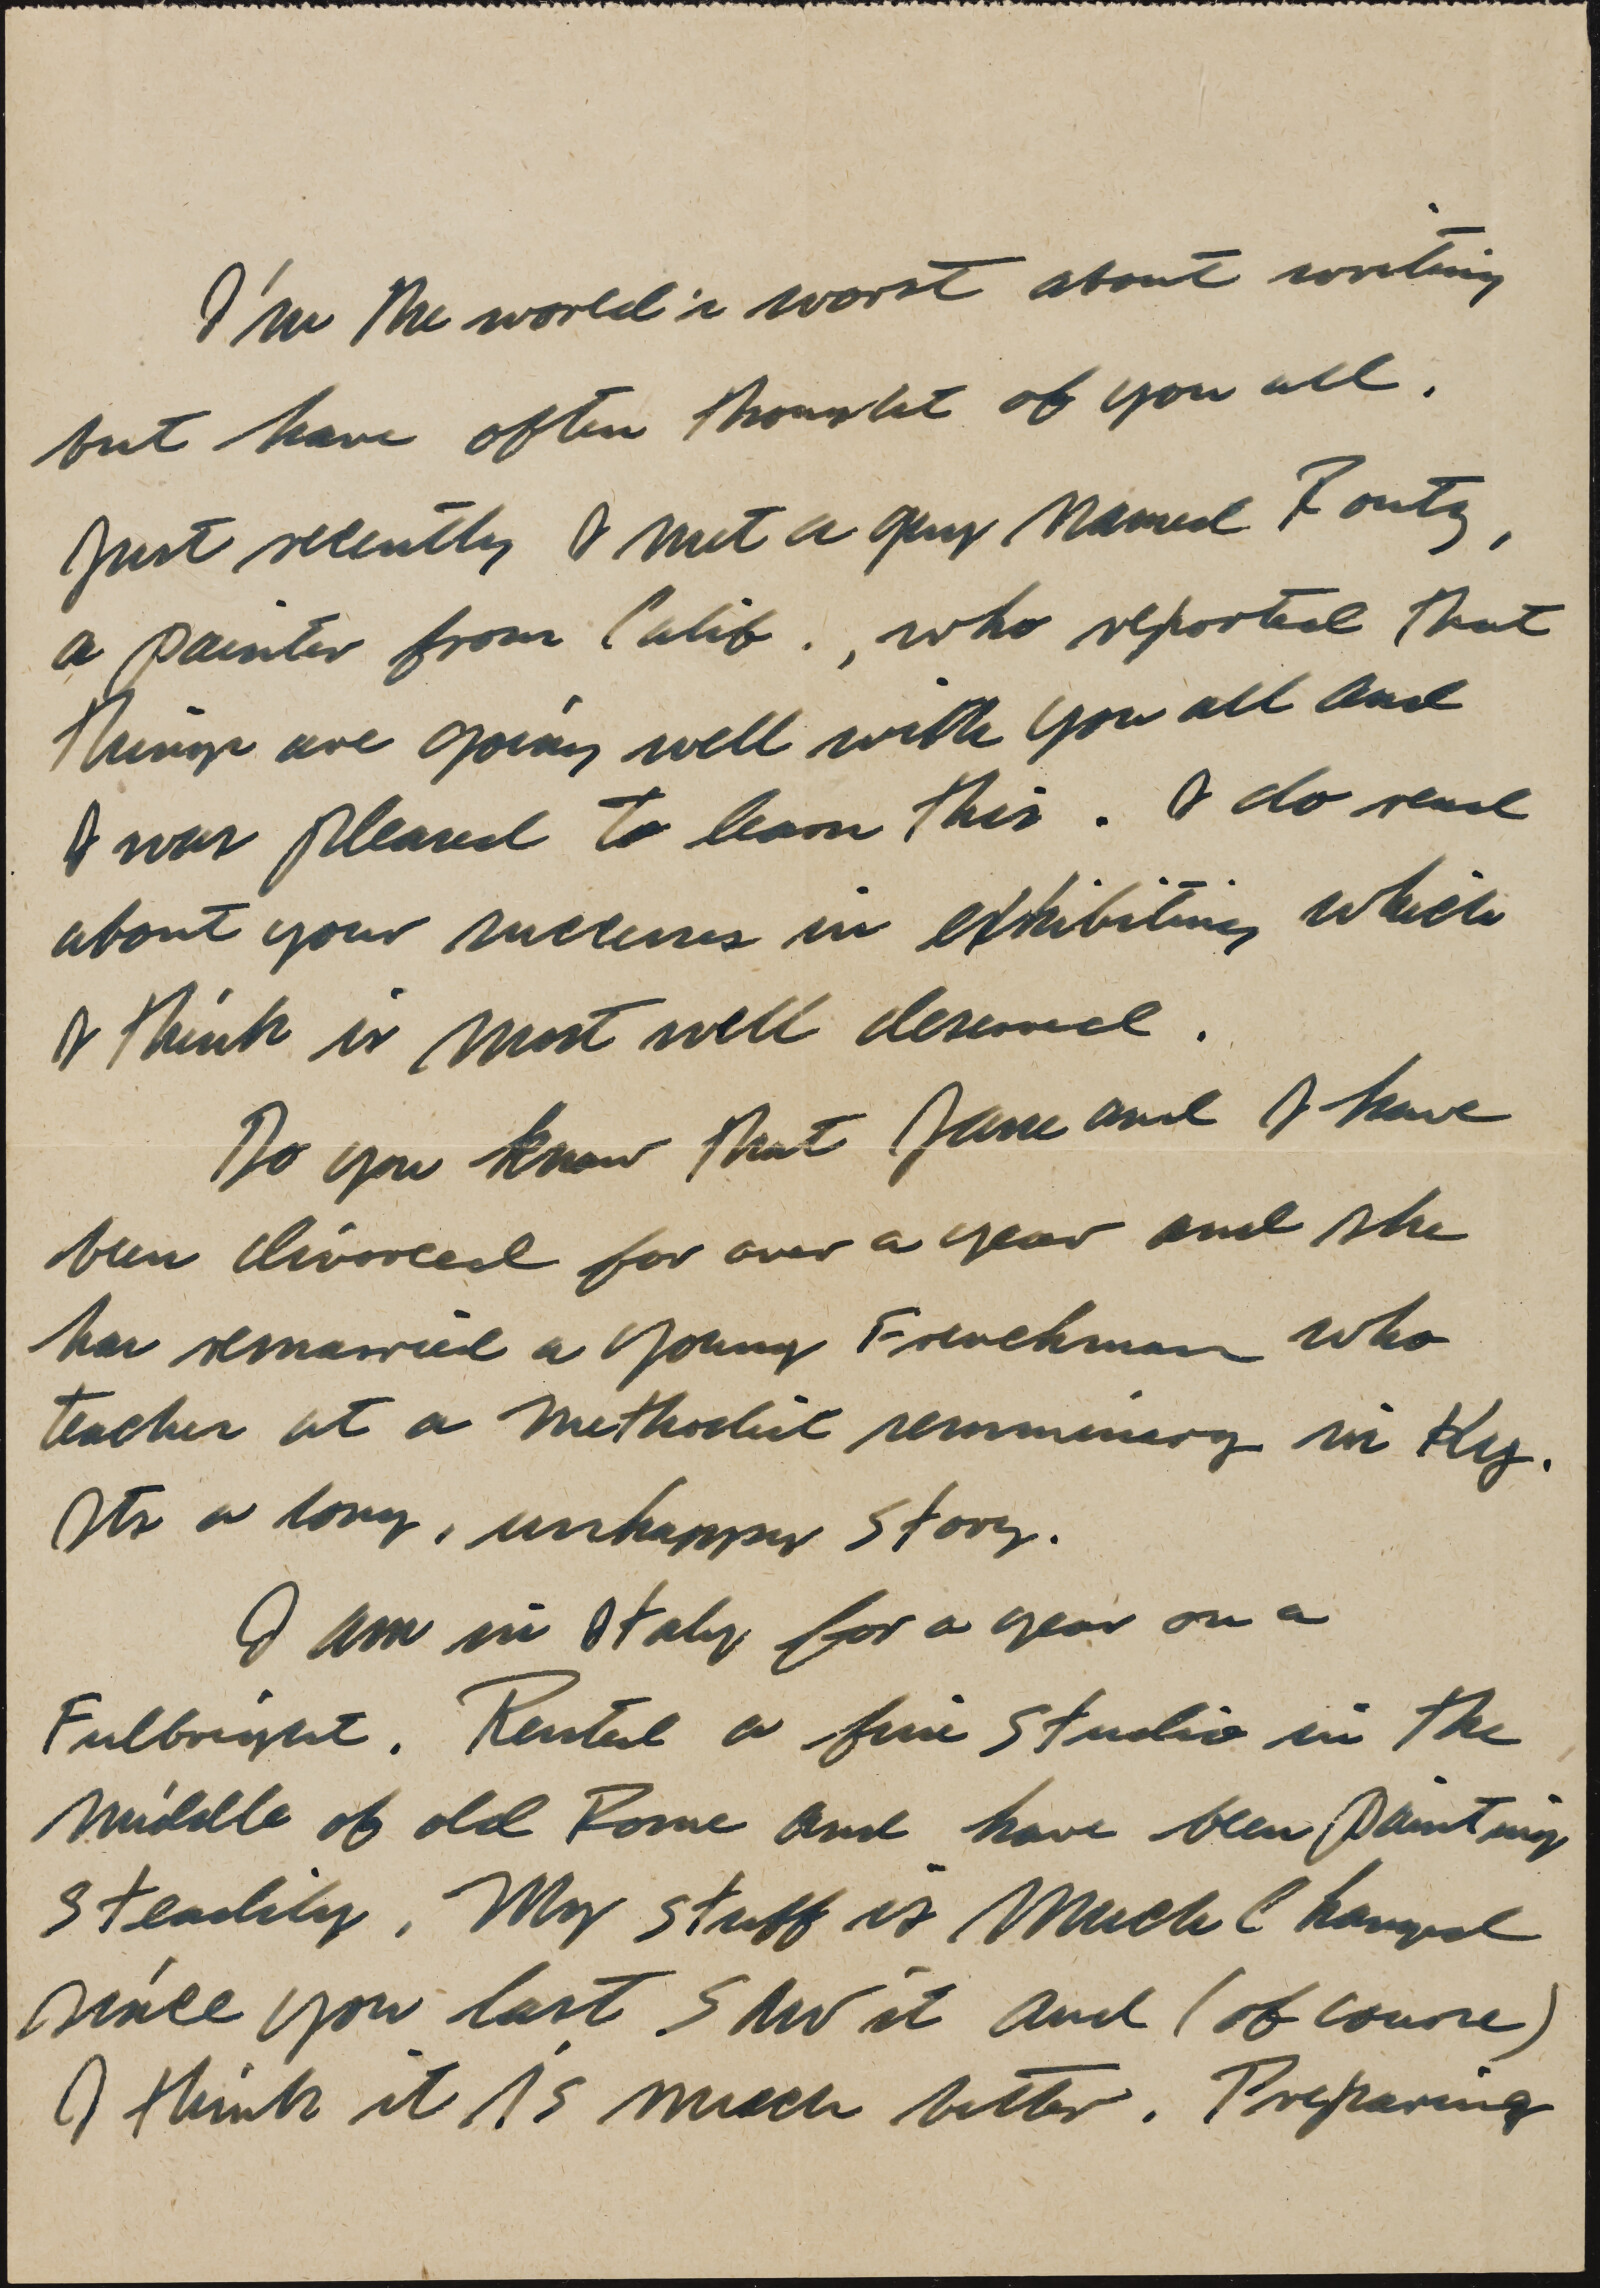 I'm the world's worst about writing
but have often thought of you all.
Just recently I met a guy named
a painter from Calif., who reported that
things are going well with you all and
I was pleased to learn this. I do read
about your successes in exhibiting which
I think is most well deserved.
Do you know that Jane and I have
been divorced for over a year and she
has remarried a young Frenchman who
teaches at a Methodist semminary in Ky.
Its a long, unhappy story.
I am in Italy for a year on a
Fulbright. Rented a fine studio in the
middle of old Rome and have been painting
steadily. My stuff is much changed
since you last saw it and (of course)
I think it is much better. Preparing